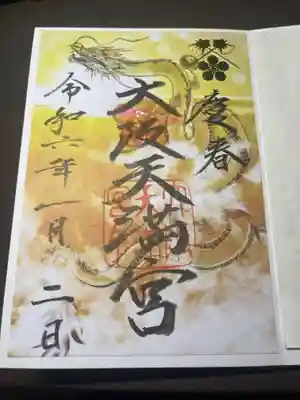 慶春
大阪天満宮
令和六年一月二日